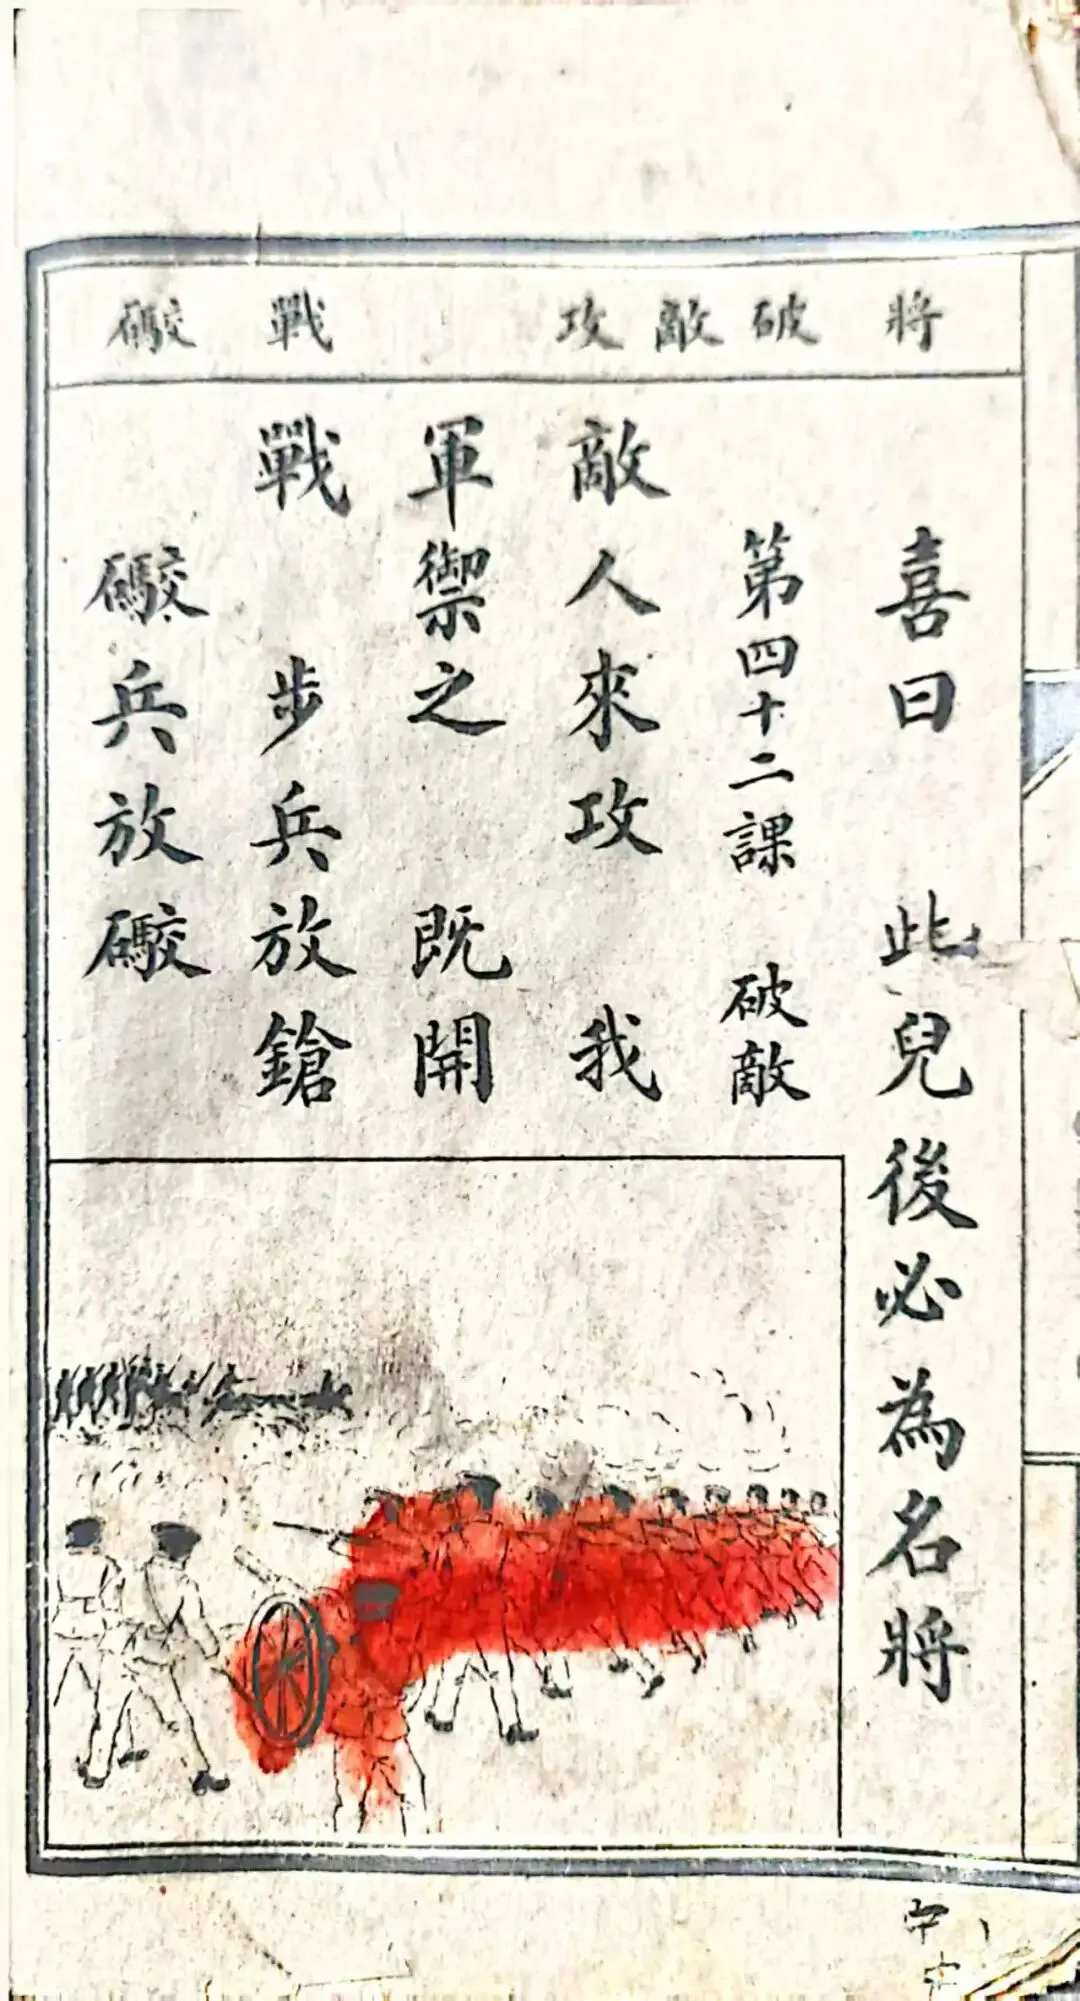 將 破 敵 攻 戰 礮
喜曰 此兒後必為名將
第四十二課 破敵
敵人來攻 我
軍禦之 既開
戰 步兵放鎗
礮兵放礮